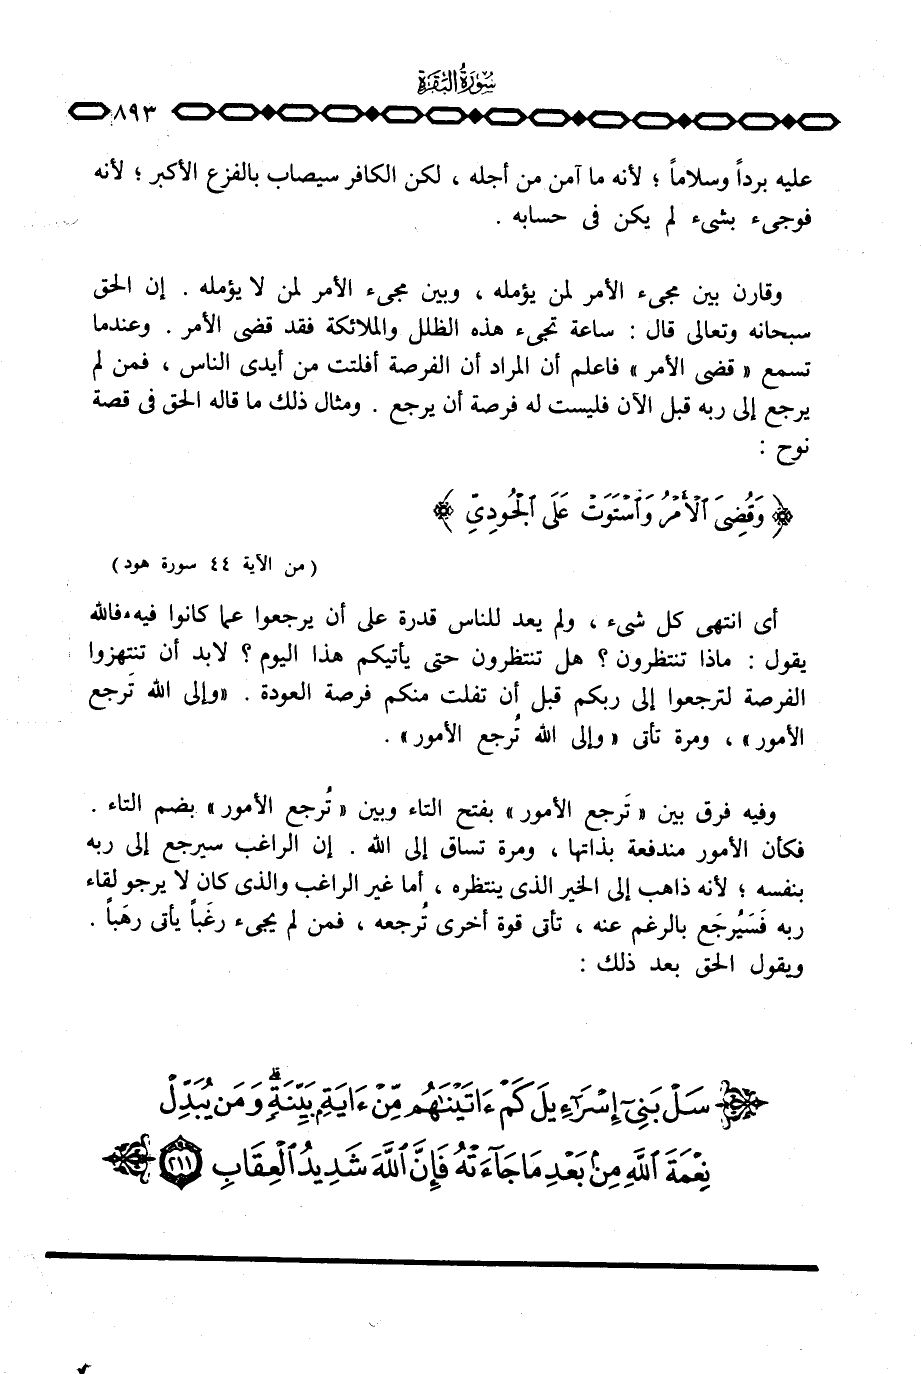 سُورَةُ البَقَرَةِ
٨٩٣
عليه برداً وسلاماً ؛ لأنه ما آمن من أجله ، لكن الكافر سيصاب بالفزع الأكبر ؛ لأنه
فوجىء بشىء لم يكن فى حسابه .
وقارن بين مجىء الأمر لمن يؤمله ، وبين مجىء الأمر لمن لا يؤمله . إن الحق
سبحانه وتعالى قال : ساعة تجىء هذه الظلل والملائكة فقد قضى الأمر . وعندما
تسمع « قضى الأمر » فاعلم أن المراد أن الفرصة أفلتت من أيدى الناس ، فمن لم
يرجع إلى ربه قبل الآن فليست له فرصة أن يرجع . ومثال ذلك ما قاله الحق فى قصة
نوح :
﴿ وَقُضِىَ ٱلْأَمْرُ وَٱسْتَوَتْ عَلَى ٱلْجُودِىِّ ﴾
( من الآية ٤٤ سورة هود )
أى انتهى كل شىء ، ولم يعد للناس قدرة على أن يرجعوا عما كانوا فيه ، فالله
يقول : ماذا تنتظرون ؟ هل تنتظرون حتى يأتيكم هذا اليوم ؟ لابد أن تنتهزوا
الفرصة لترجعوا إلى ربكم قبل أن تفلت منكم فرصة العودة . « وإلى الله تَرجع
الأمور » ، ومرة تأتى « وإلى الله تُرجع الأمور » .
وفيه فرق بين « تَرجع الأمور » بفتح التاء وبين « تُرجع الأمور » بضم التاء .
فكأن الأمور مندفعة بذاتها ، ومرة تساق إلى الله . إن الراغب سيرجع إلى ربه
بنفسه ؛ لأنه ذاهب إلى الخير الذى ينتظره ، أما غير الراغب والذى كان لا يرجو لقاء
ربه فَسَيُرجَع بالرغم عنه ، تأتى قوة أخرى تُرجعه ، فمن لم يجىء رغَباً يأتى رهَباً .
ويقول الحق بعد ذلك :
سَلْ بَنِىٓ إِسْرَٰٓءِيلَ كَمْ ءَاتَيْنَٰهُم مِّنْ ءَايَةٍۭ بَيِّنَةٍۗ وَمَن يُبَدِّلْ
نِعْمَةَ ٱللَّهِ مِنۢ بَعْدِ مَا جَآءَتْهُ فَإِنَّ ٱللَّهَ شَدِيدُ ٱلْعِقَابِ ٢١١